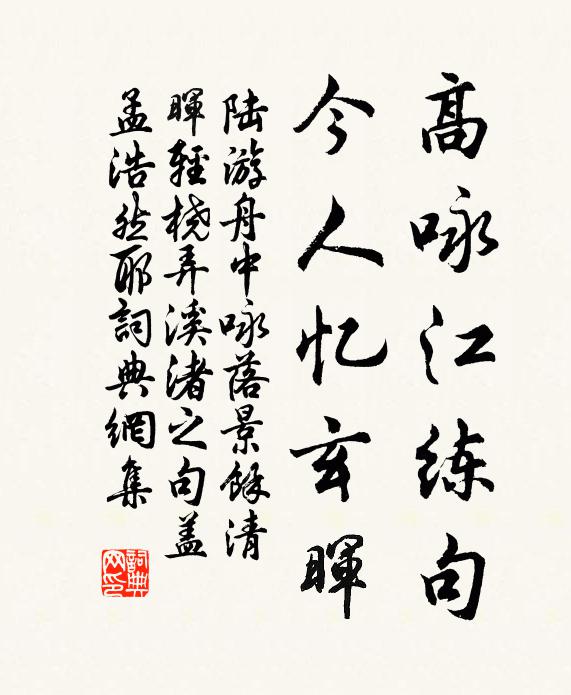 高咏江练句
今人忆玄暉
陆游舟中咏落景餘清
暉輕桡弄溪渚之句盖
孟浩然耶詞典網集
詞典网印